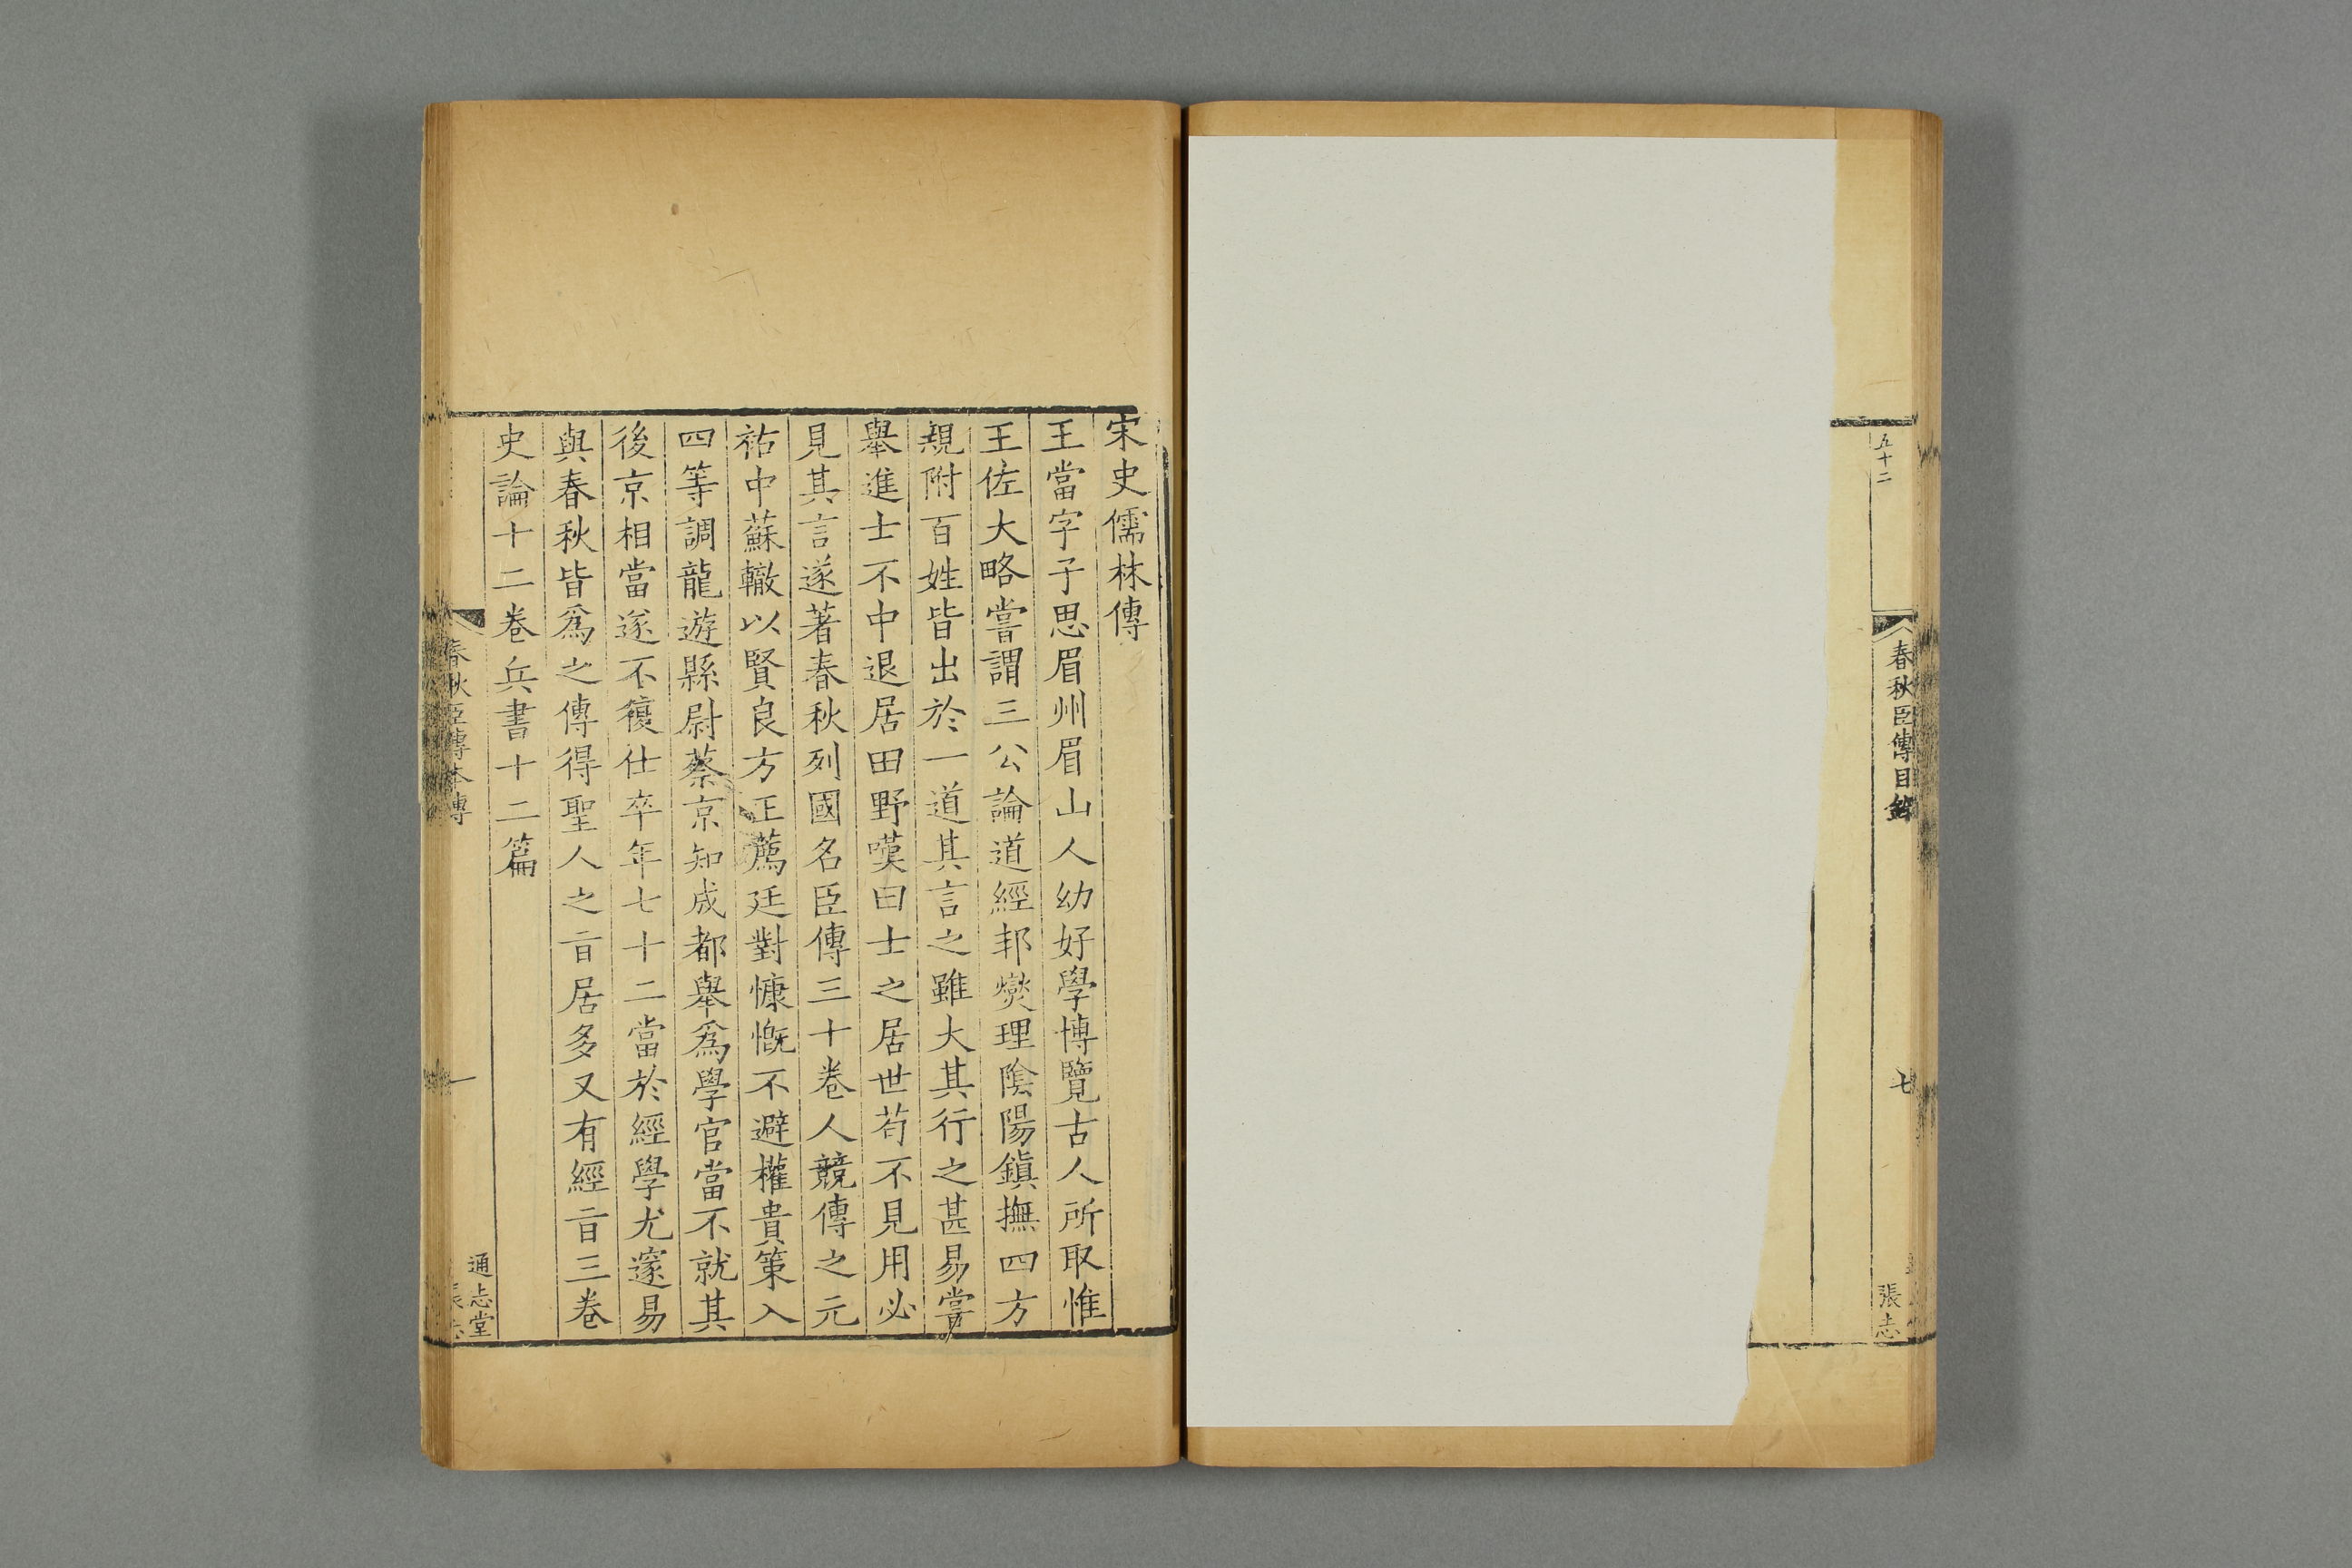 五十二
春秋臣傳目錄
七
張志
宋史儒林傳
王當字子思眉州眉山人幼好學博覽古人所取惟
王佐大略嘗謂三公論道經邦燮理陰陽鎮撫四方
親附百姓皆出於一道其言之雖大其行之甚易嘗
舉進士不中退居田野嘆曰士之居世苟不見用必
見其言遂著春秋列國名臣傳三十卷人競傳之元
祐中蘇轍以賢良方正薦廷對慷慨不避權貴策入
四等調龍遊縣尉蔡京知成都舉爲學官當不就其
後京相當遂不復仕卒年七十二當於經學尤邃易
與春秋皆爲之傳得聖人之㫖居多又有經㫖三卷
史論十二卷兵書十二篇
春秋臣傳本傳
一
通志堂